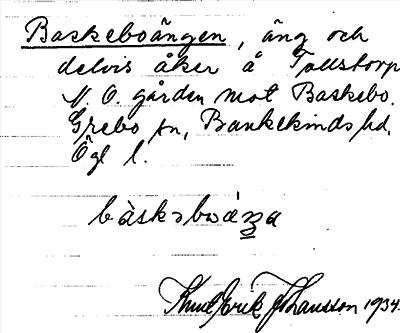 Baskeboängen, äng och
delvis åker å Tollstorp
N. O. gården mot Baskebo.
Grebo sn, Bankekinds hd,
Ögl l.
bàskəboáŋa
Knut Erik Johansson 1934.